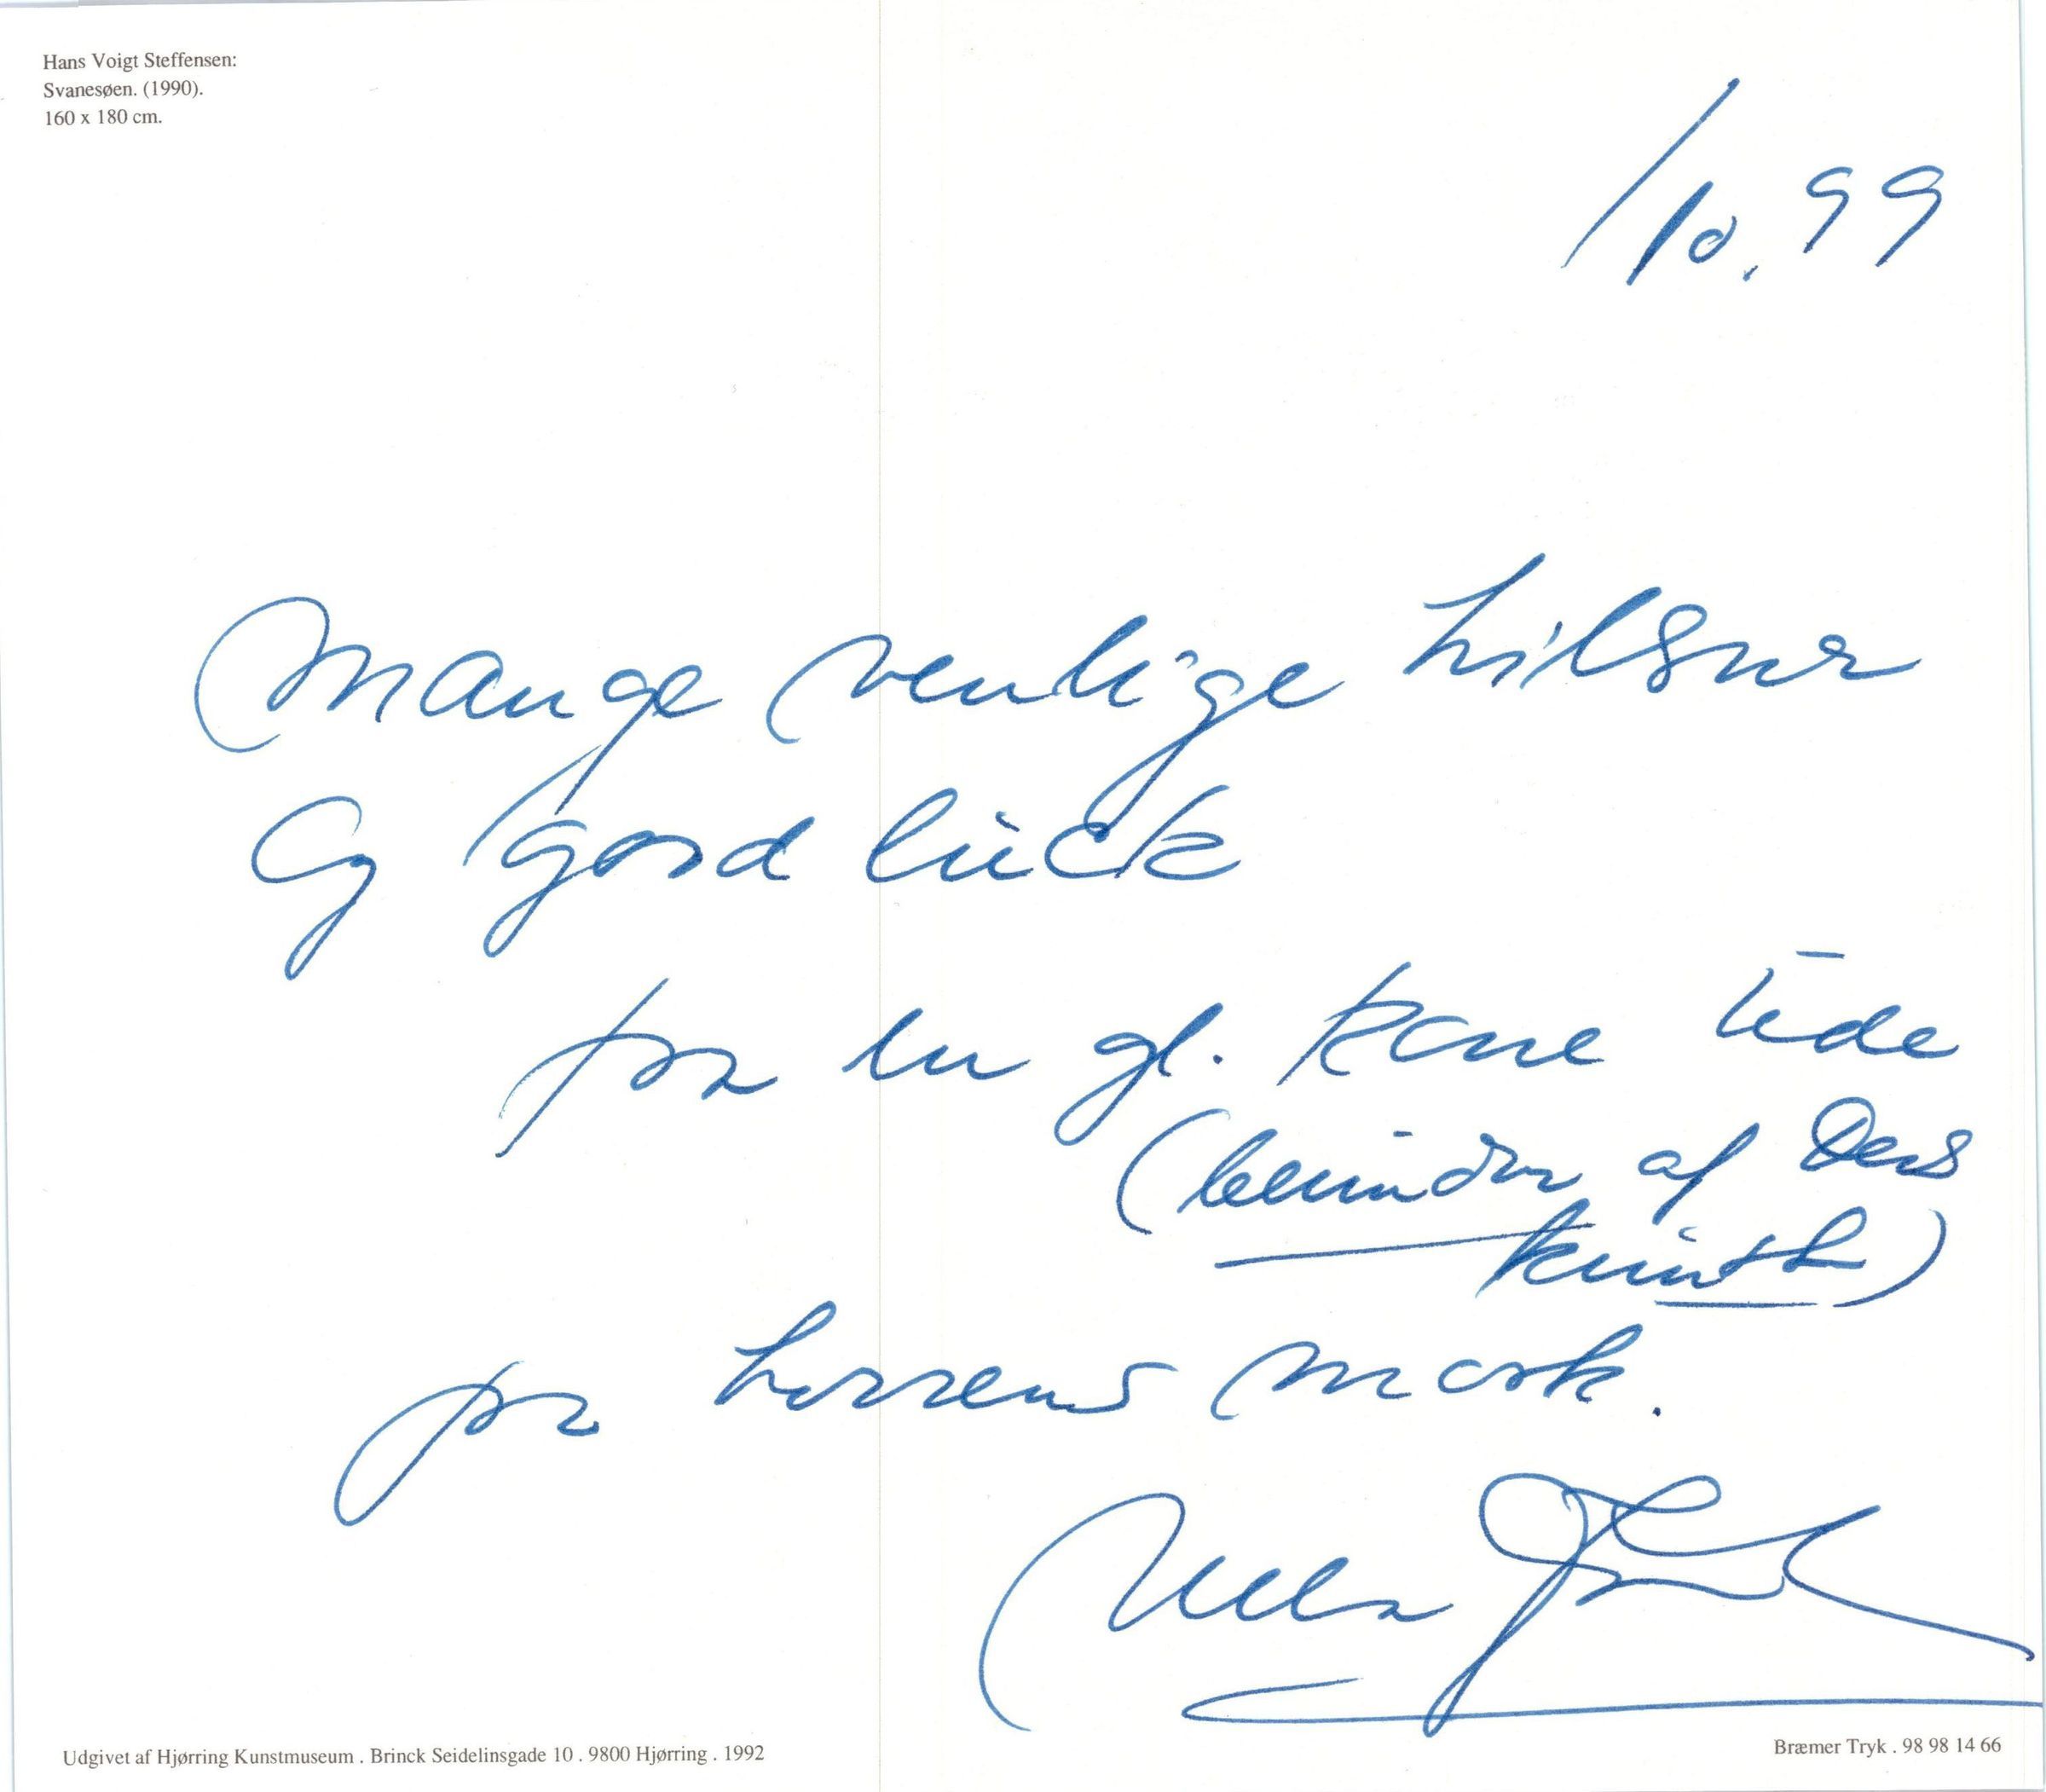 Hans Voigt Steffensen:
Svanesøen. (1990).
160 x 180 cm.
/10. 99
Mange venlige hilsner
og good luck
fra en gl. kone ude
(beundrer af Deres
kunst)
fra horrens mark.
Ulla
Udgivet af Hjørring Kunstmuseum . Brinck Seidelinsgade 10 . 9800 Hjørring . 1992
Bræmer Tryk . 98 98 14 66